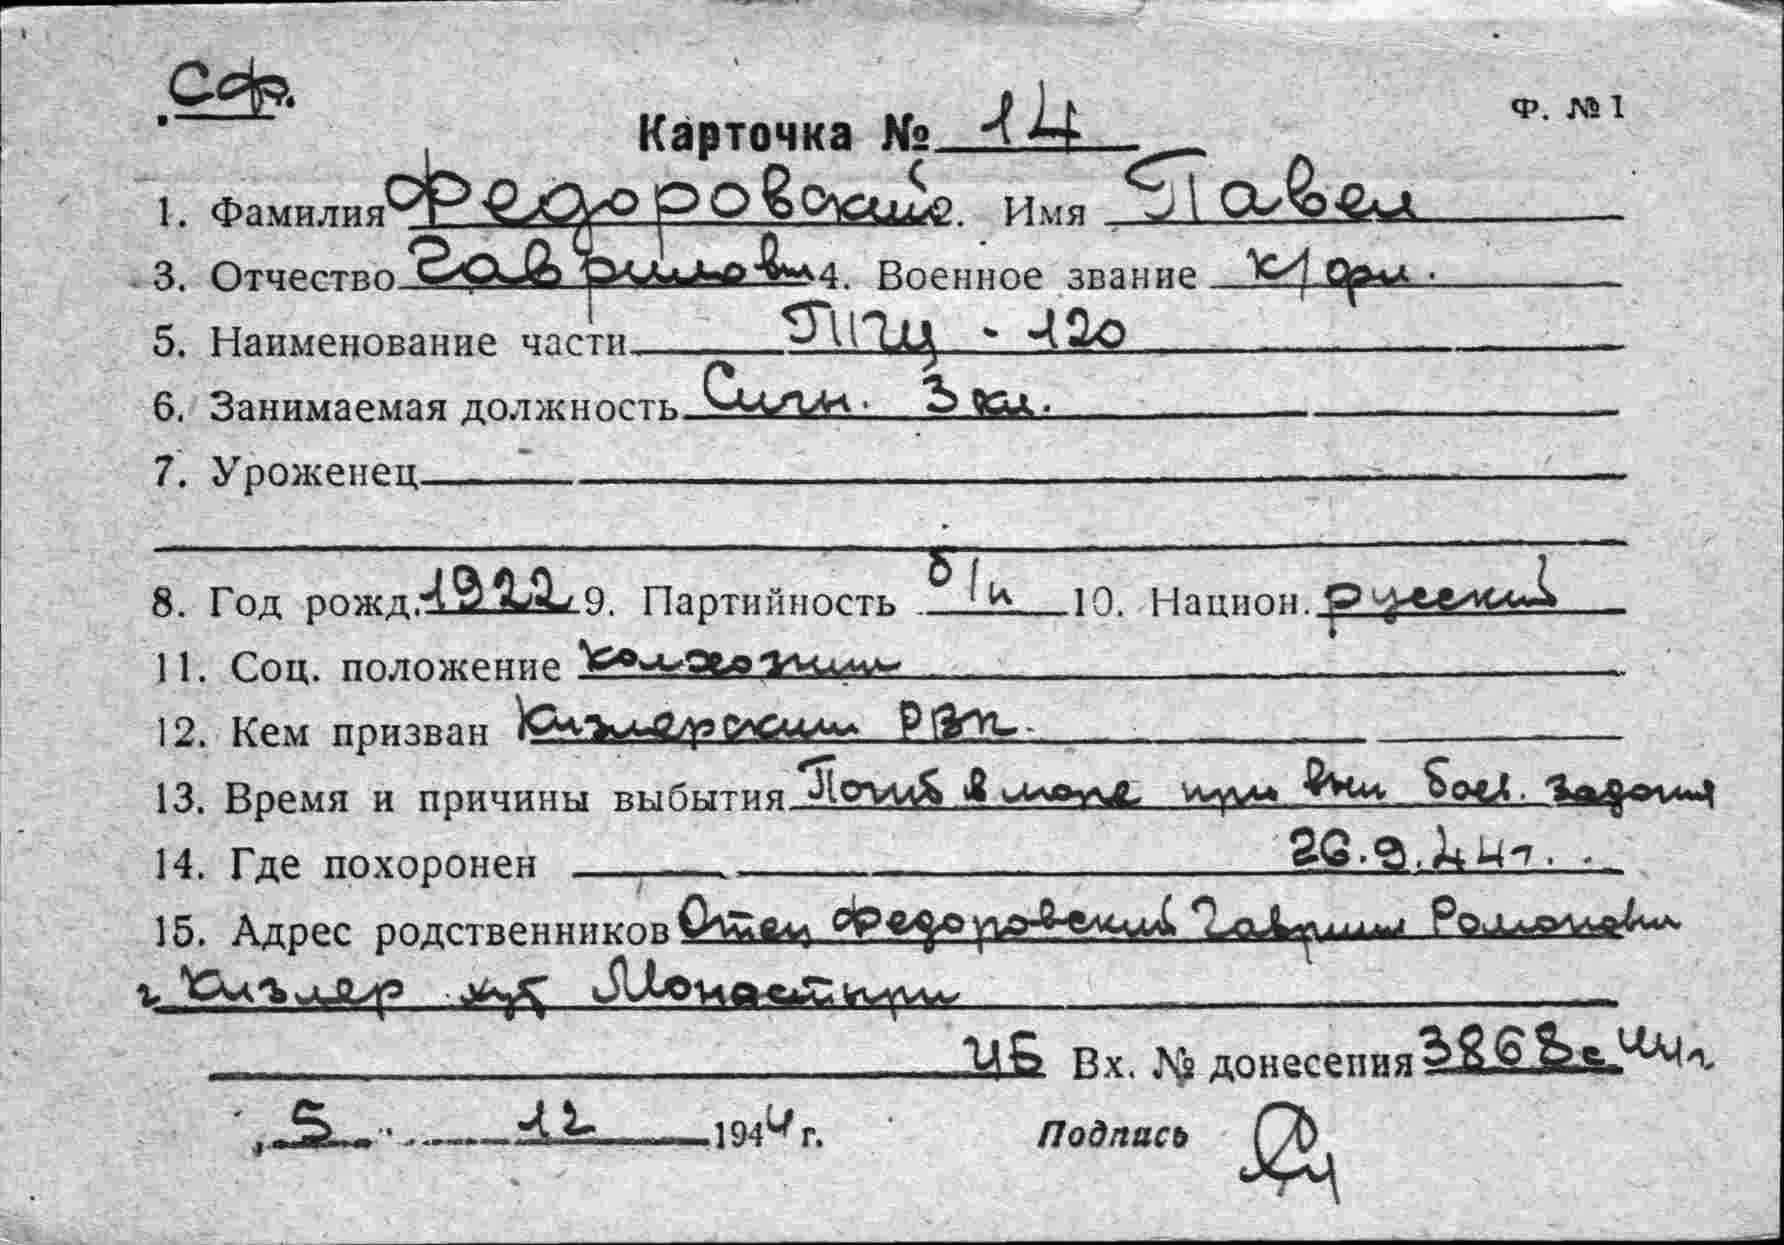 СФ.
Ф. № 1
Карточка № 14
1. Фамилия Федоровский 2. Имя Павел
3. Отчество Гаврилович 4. Военное звание к/фл.
5. Наименование части ТЩ - 120
6. Занимаемая должность Сигн. 3 кл.
7. Уроженец
8. Год рожд. 1922 9. Партийность б/п 10. Национ. русский
11. Соц. положение колхозник
12. Кем призван Кизлярским РВК.
13. Время и причины выбытия Погиб в море при вып боев. задания
14. Где похоронен 26.9.44г.
15. Адрес родственников Отец Федоровский Гаврил Романович
г Кизляр хут Монастыри
Вх. № донесения 3868с 44г
5 12 1944 г. Подпись